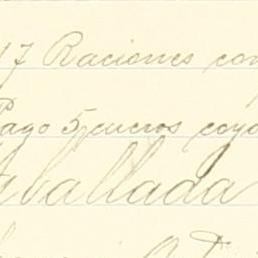 17 Raciones con
Pago 5 cueros coyo
aballada